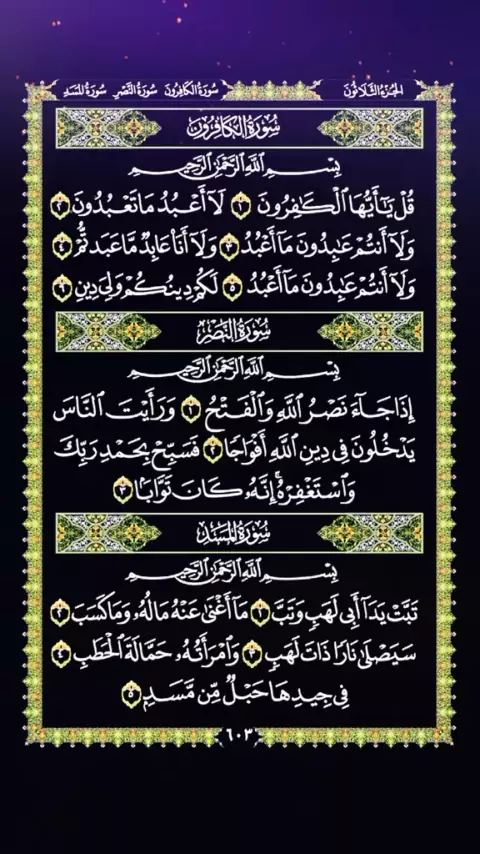 الجزء الثلاثون سورة الكافرون سورة النصر سورة المسد
سورة الكافرون
بِسْمِ اللَّهِ الرَّحْمَٰنِ الرَّحِيمِ
قُلْ يَٰٓأَيُّهَا ٱلْكَٰفِرُونَ ١ لَآ أَعْبُدُ مَا تَعْبُدُونَ ٢
وَلَآ أَنتُمْ عَٰبِدُونَ مَآ أَعْبُدُ ٣ وَلَآ أَنَا۠ عَابِدٌ مَّا عَبَدتُّمْ ٤
وَلَآ أَنتُمْ عَٰبِدُونَ مَآ أَعْبُدُ ٥ لَكُمْ دِينُكُمْ وَلِىَ دِينِ ٦
سورة النصر
بِسْمِ اللَّهِ الرَّحْمَٰنِ الرَّحِيمِ
إِذَا جَآءَ نَصْرُ ٱللَّهِ وَٱلْفَتْحُ ١ وَرَأَيْتَ ٱلنَّاسَ
يَدْخُلُونَ فِى دِينِ ٱللَّهِ أَفْوَاجًا ٢ فَسَبِّحْ بِحَمْدِ رَبِّكَ
وَٱسْتَغْفِرْهُ ۚ إِنَّهُۥ كَانَ تَوَّابًۢا ٣
سورة المسد
بِسْمِ اللَّهِ الرَّحْمَٰنِ الرَّحِيمِ
تَبَّتْ يَدَآ أَبِى لَهَبٍ وَتَبَّ ١ مَآ أَغْنَىٰ عَنْهُ مَالُهُۥ وَمَا كَسَبَ ٢
سَيَصْلَىٰ نَارًا ذَاتَ لَهَبٍ ٣ وَٱمْرَأَتُهُۥ حَمَّالَةَ ٱلْحَطَبِ ٤
فِى جِيدِهَا حَبْلٌ مِّن مَّسَدٍۭ ٥
٦٠٣